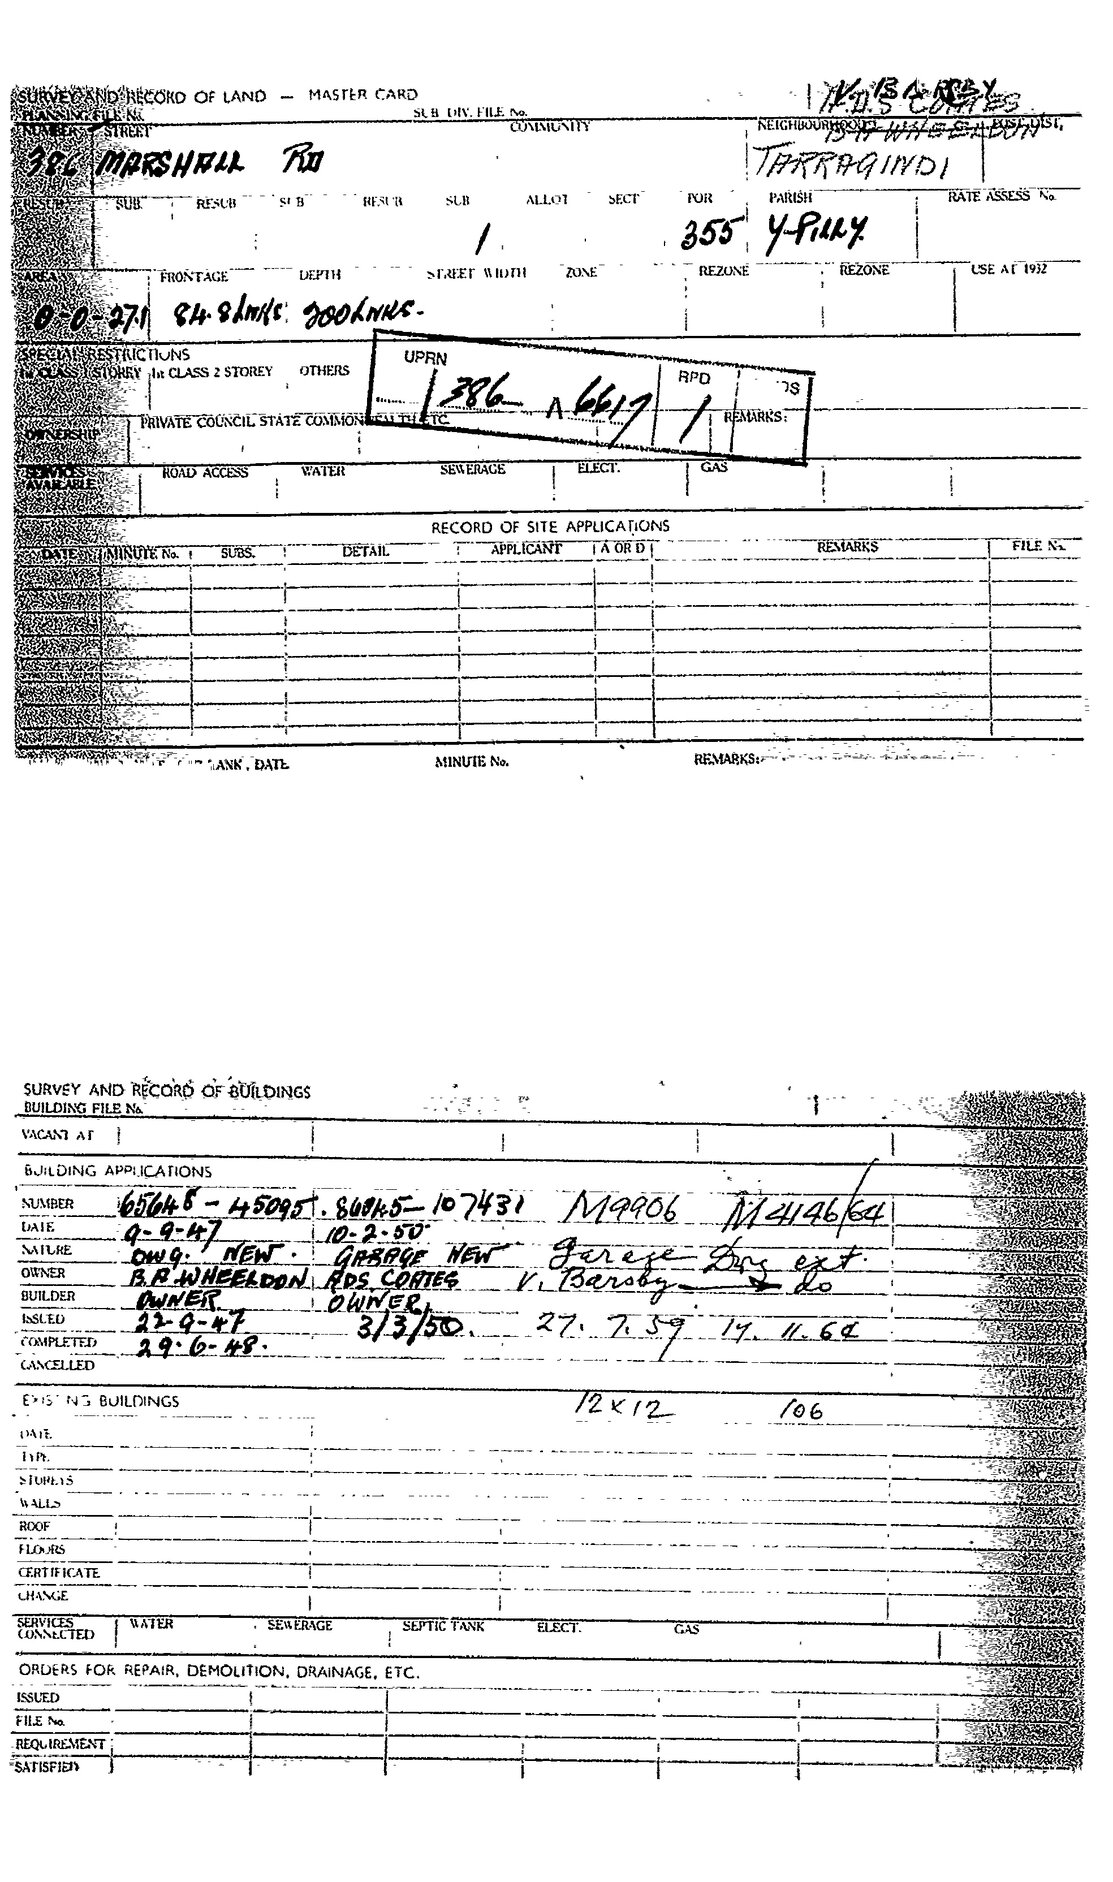 V. BARSBY
R.D.S COATES
B A WHEELDON
SURVEY AND RECORD OF LAND — MASTER CARD
PLANNING FILE No. SUB DIV. FILE No.
NUMBERS STREET COMMUNITY NEIGHBOURHOOD POST. DIST.
386 MARSHALL RD TARRAGINDI
RESUB SUB. RESUB SUB RESUB SUB ALLOT SECT POR PARISH RATE ASSESS No.
1 355 Y-PILLY.
AREA FRONTAGE DEPTH STREET WIDTH ZONE REZONE REZONE USE AT 1932
0-0-27.1 84.8 LNKS. 200 LNKS.
SPECIAL RESTRICTIONS
1st CLASS 1 STOREY 1st CLASS 2 STOREY OTHERS
UPRN RPD
386 A 6617 1
OWNERSHIP PRIVATE COUNCIL STATE COMMONWEALTH ETC. REMARKS:
SERVICES AVAILABLE ROAD ACCESS WATER SEWERAGE ELECT. GAS
RECORD OF SITE APPLICATIONS
DATE MINUTE No. SUBS. DETAIL APPLICANT A OR D REMARKS FILE No.
DATE MINUTE No. REMARKS:
SURVEY AND RECORD OF BUILDINGS
BUILDING FILE No.
VACANT AT
BUILDING APPLICATIONS
NUMBER 65645 - 45095. 86845 - 107431 M9906 M4146/64
DATE 9-9-47 10-2-50
NATURE DWG. NEW. GARAGE NEW Garage Dwg ext.
OWNER B.A. WHEELDON RDS COATES V. Barsby do
BUILDER OWNER OWNER,
ISSUED 22-9-47 3/3/50. 27. 7. 59 17. 11. 64
COMPLETED 29.6-48.
CANCELLED
EXISTING BUILDINGS 12 x 12 106
DATE
TYPE
STOREYS
WALLS
ROOF
FLOORS
CERTIFICATE
CHANGE
SERVICES CONNECTED WATER SEWERAGE SEPTIC TANK ELECT. GAS
ORDERS FOR REPAIR, DEMOLITION, DRAINAGE, ETC.
ISSUED
FILE No.
REQUIREMENT
SATISFIED